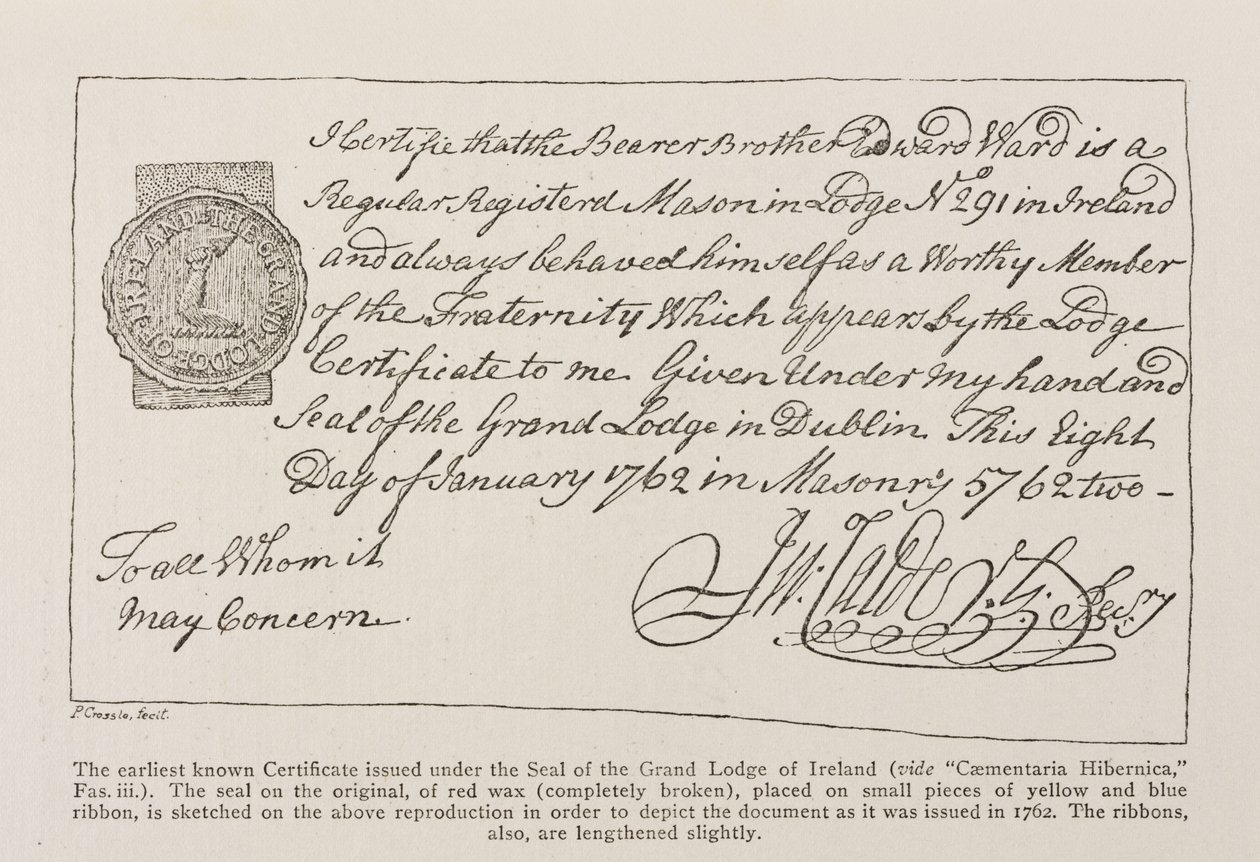 I Certifie that the Bearer Brother Edward Ward is a
Regular Registerd Mason in Lodge No 291 in Ireland
and always behaved himself as a Worthy Member
of the Fraternity Which appears by the Lodge
Certificate to me. Given Under my hand and
Seal of the Grand Lodge in Dublin. This Eight
Day of January 1762 in Masonry 5762 two -
To all Whom it
May Concern.
THE GRAND LODGE OF IRELAND
P. Crossle, fecit.
The earliest known Certificate issued under the Seal of the Grand Lodge of Ireland (vide “Cæmentaria Hibernica,”
Fas. iii.). The seal on the original, of red wax (completely broken), placed on small pieces of yellow and blue
ribbon, is sketched on the above reproduction in order to depict the document as it was issued in 1762. The ribbons,
also, are lengthened slightly.